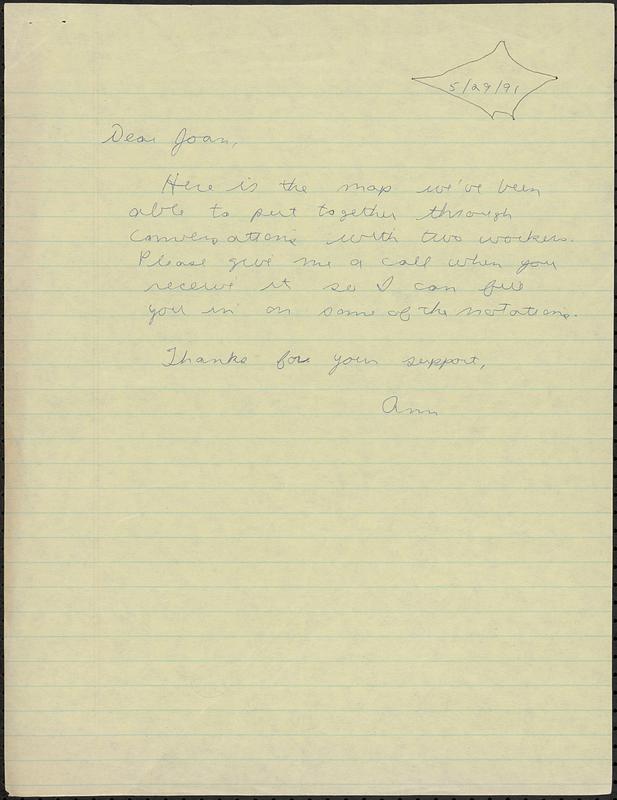 5/29/91
Dear Joan,
Here is the map we've been
able to put together through
conversations with two workers.
Please give me a call when you
receive it so I can fill
you in on some of the notations.
Thanks for your support,
Ann